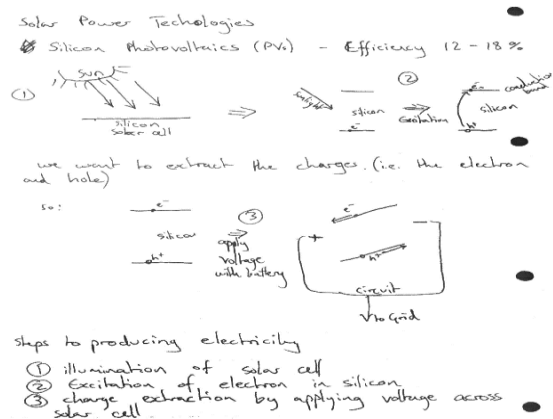 Solar Power Techologies
Silicon Photovoltaics (PVs) - Efficiency 12-18%
Sun
①
silicon
solar cell
②
sunlight
silicon
e-
Excitation
e-
conduction
band
silicon
h+
we want to extract the charges. (i.e. the electron
and hole)
so:
e-
silicon
h+
③
apply
voltage
with battery
e-
+
-
h+
circuit
to Grid
Steps to producing electricity
① illumination of solar cell
② Excitation of electron in silicon
③ charge extraction by applying voltage across
solar cell